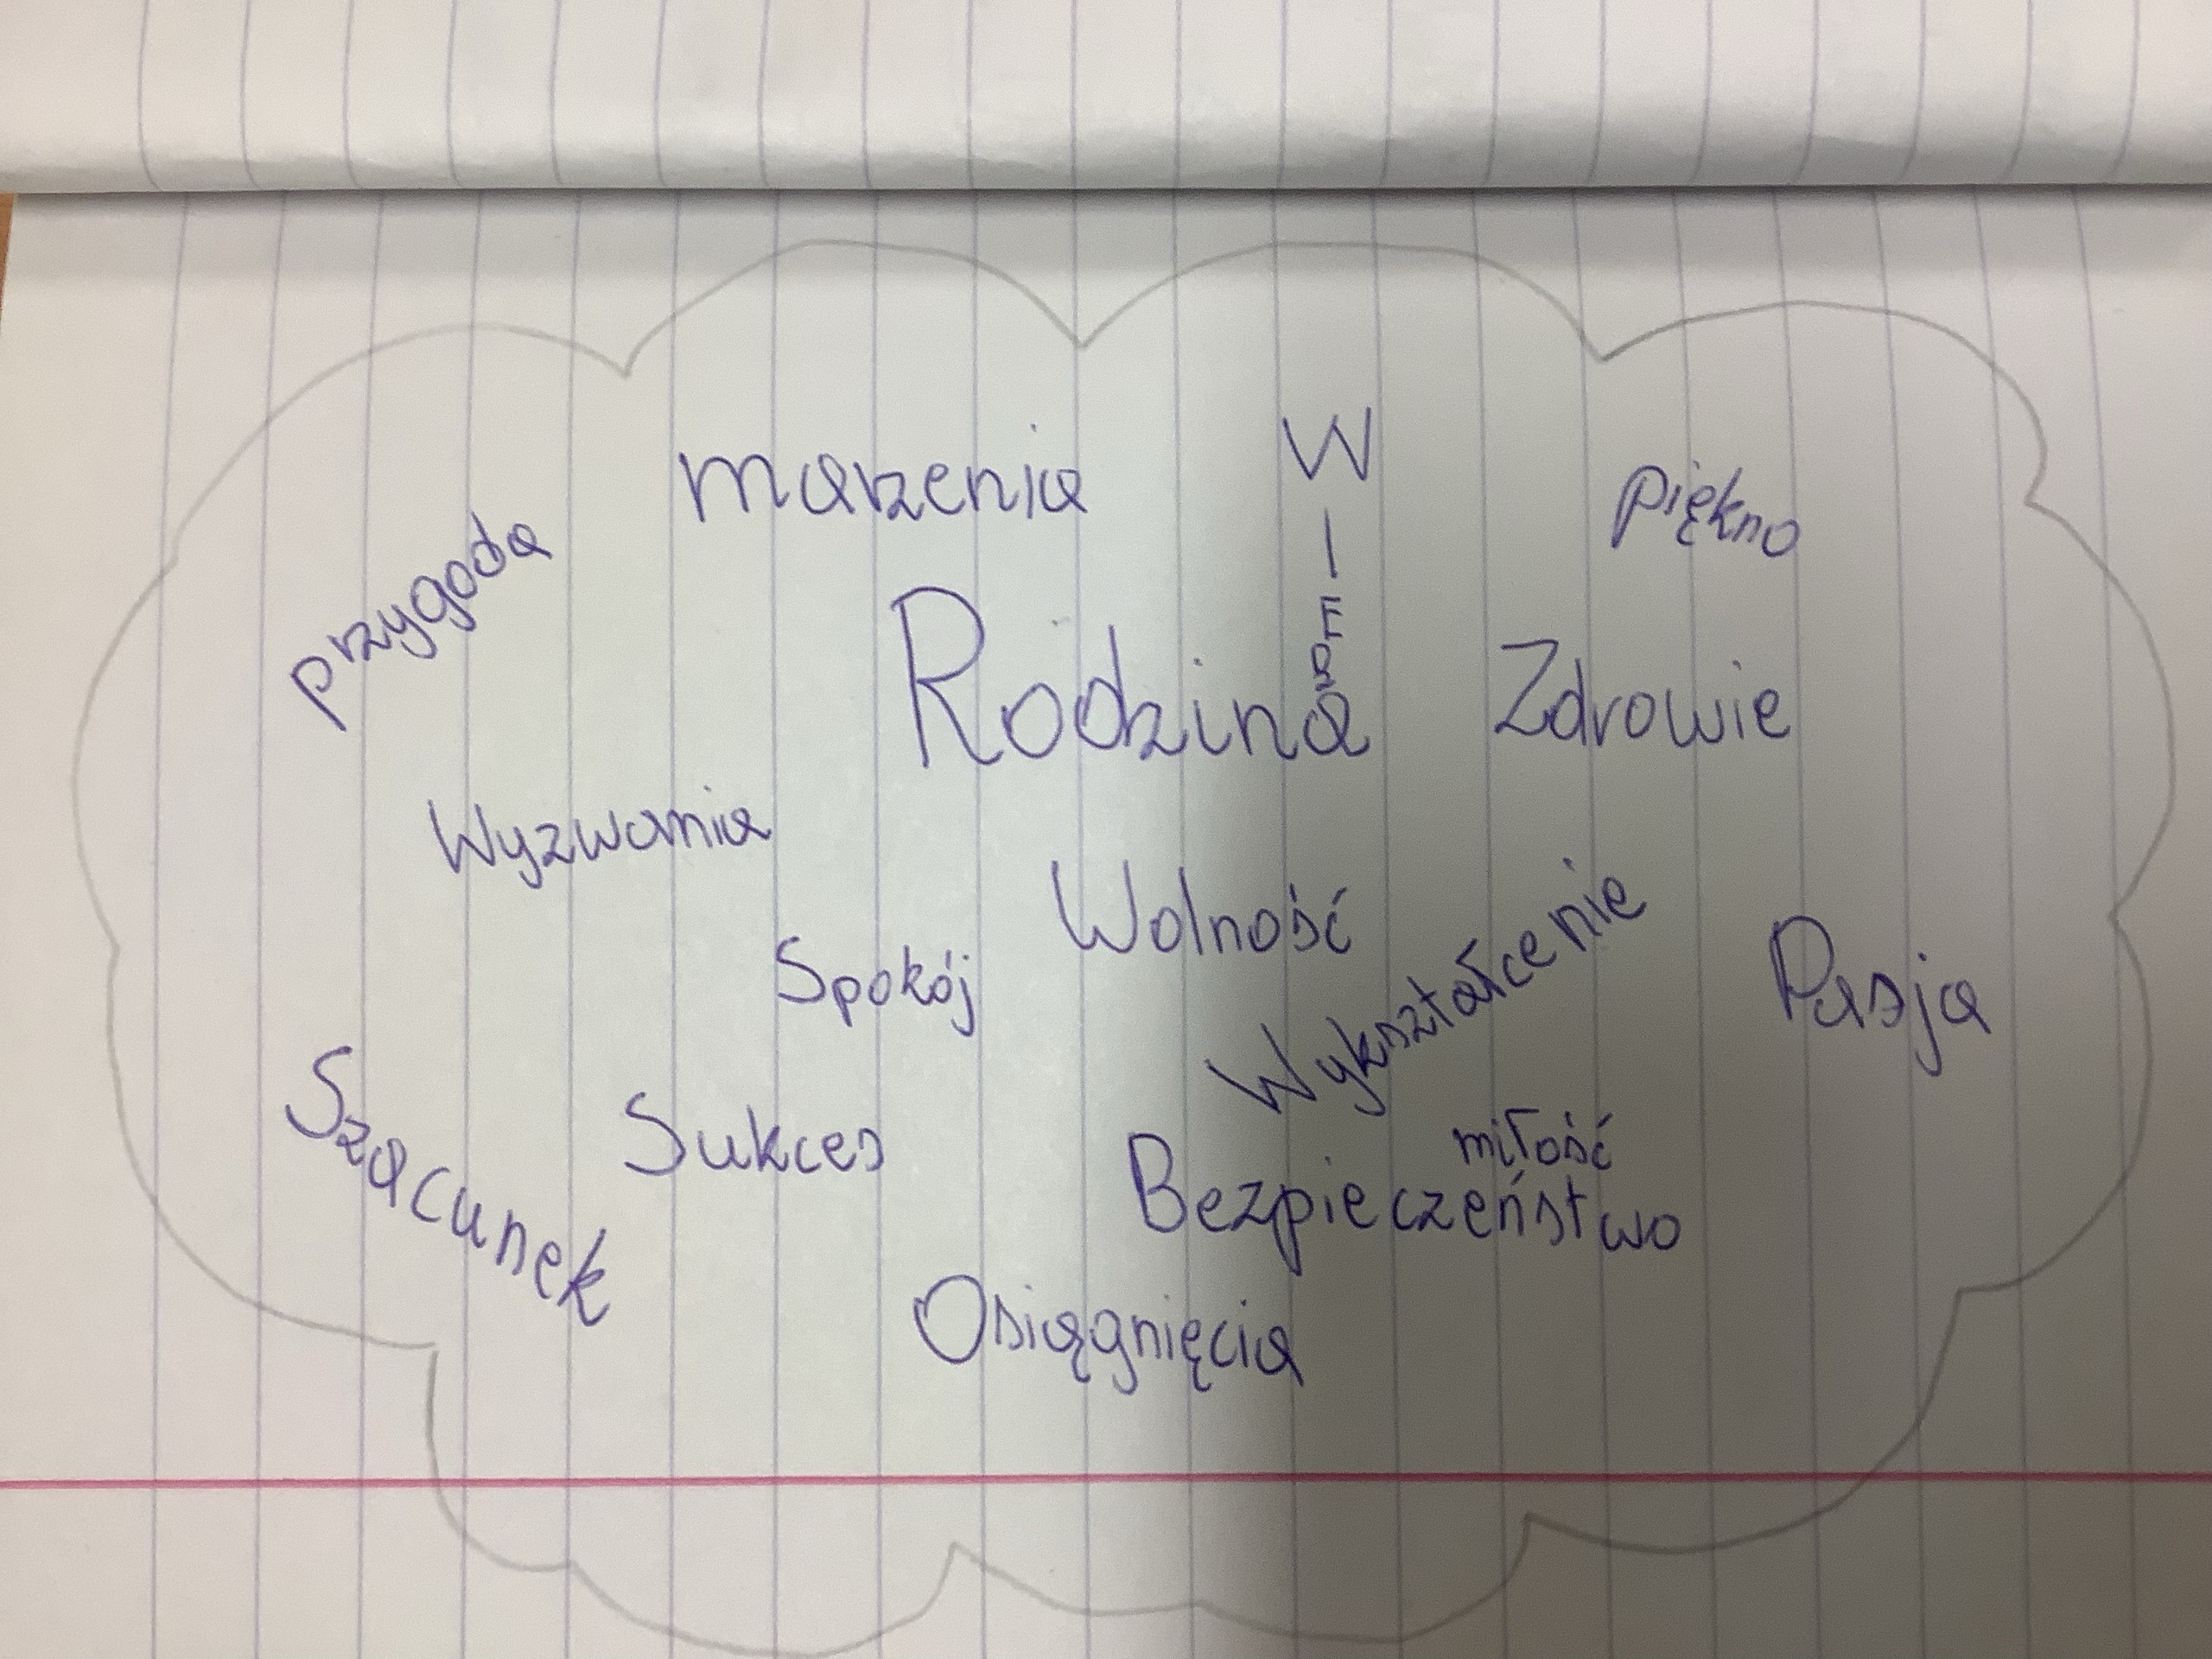 marzenia
WIERA
piękno
przygoda
Rodzina
Zdrowie
Wyzwania
Wolność
Wykształcenie
Spokój
Pasja
Szacunek
Sukces
miłość
Bezpieczeństwo
Osiągnięcia